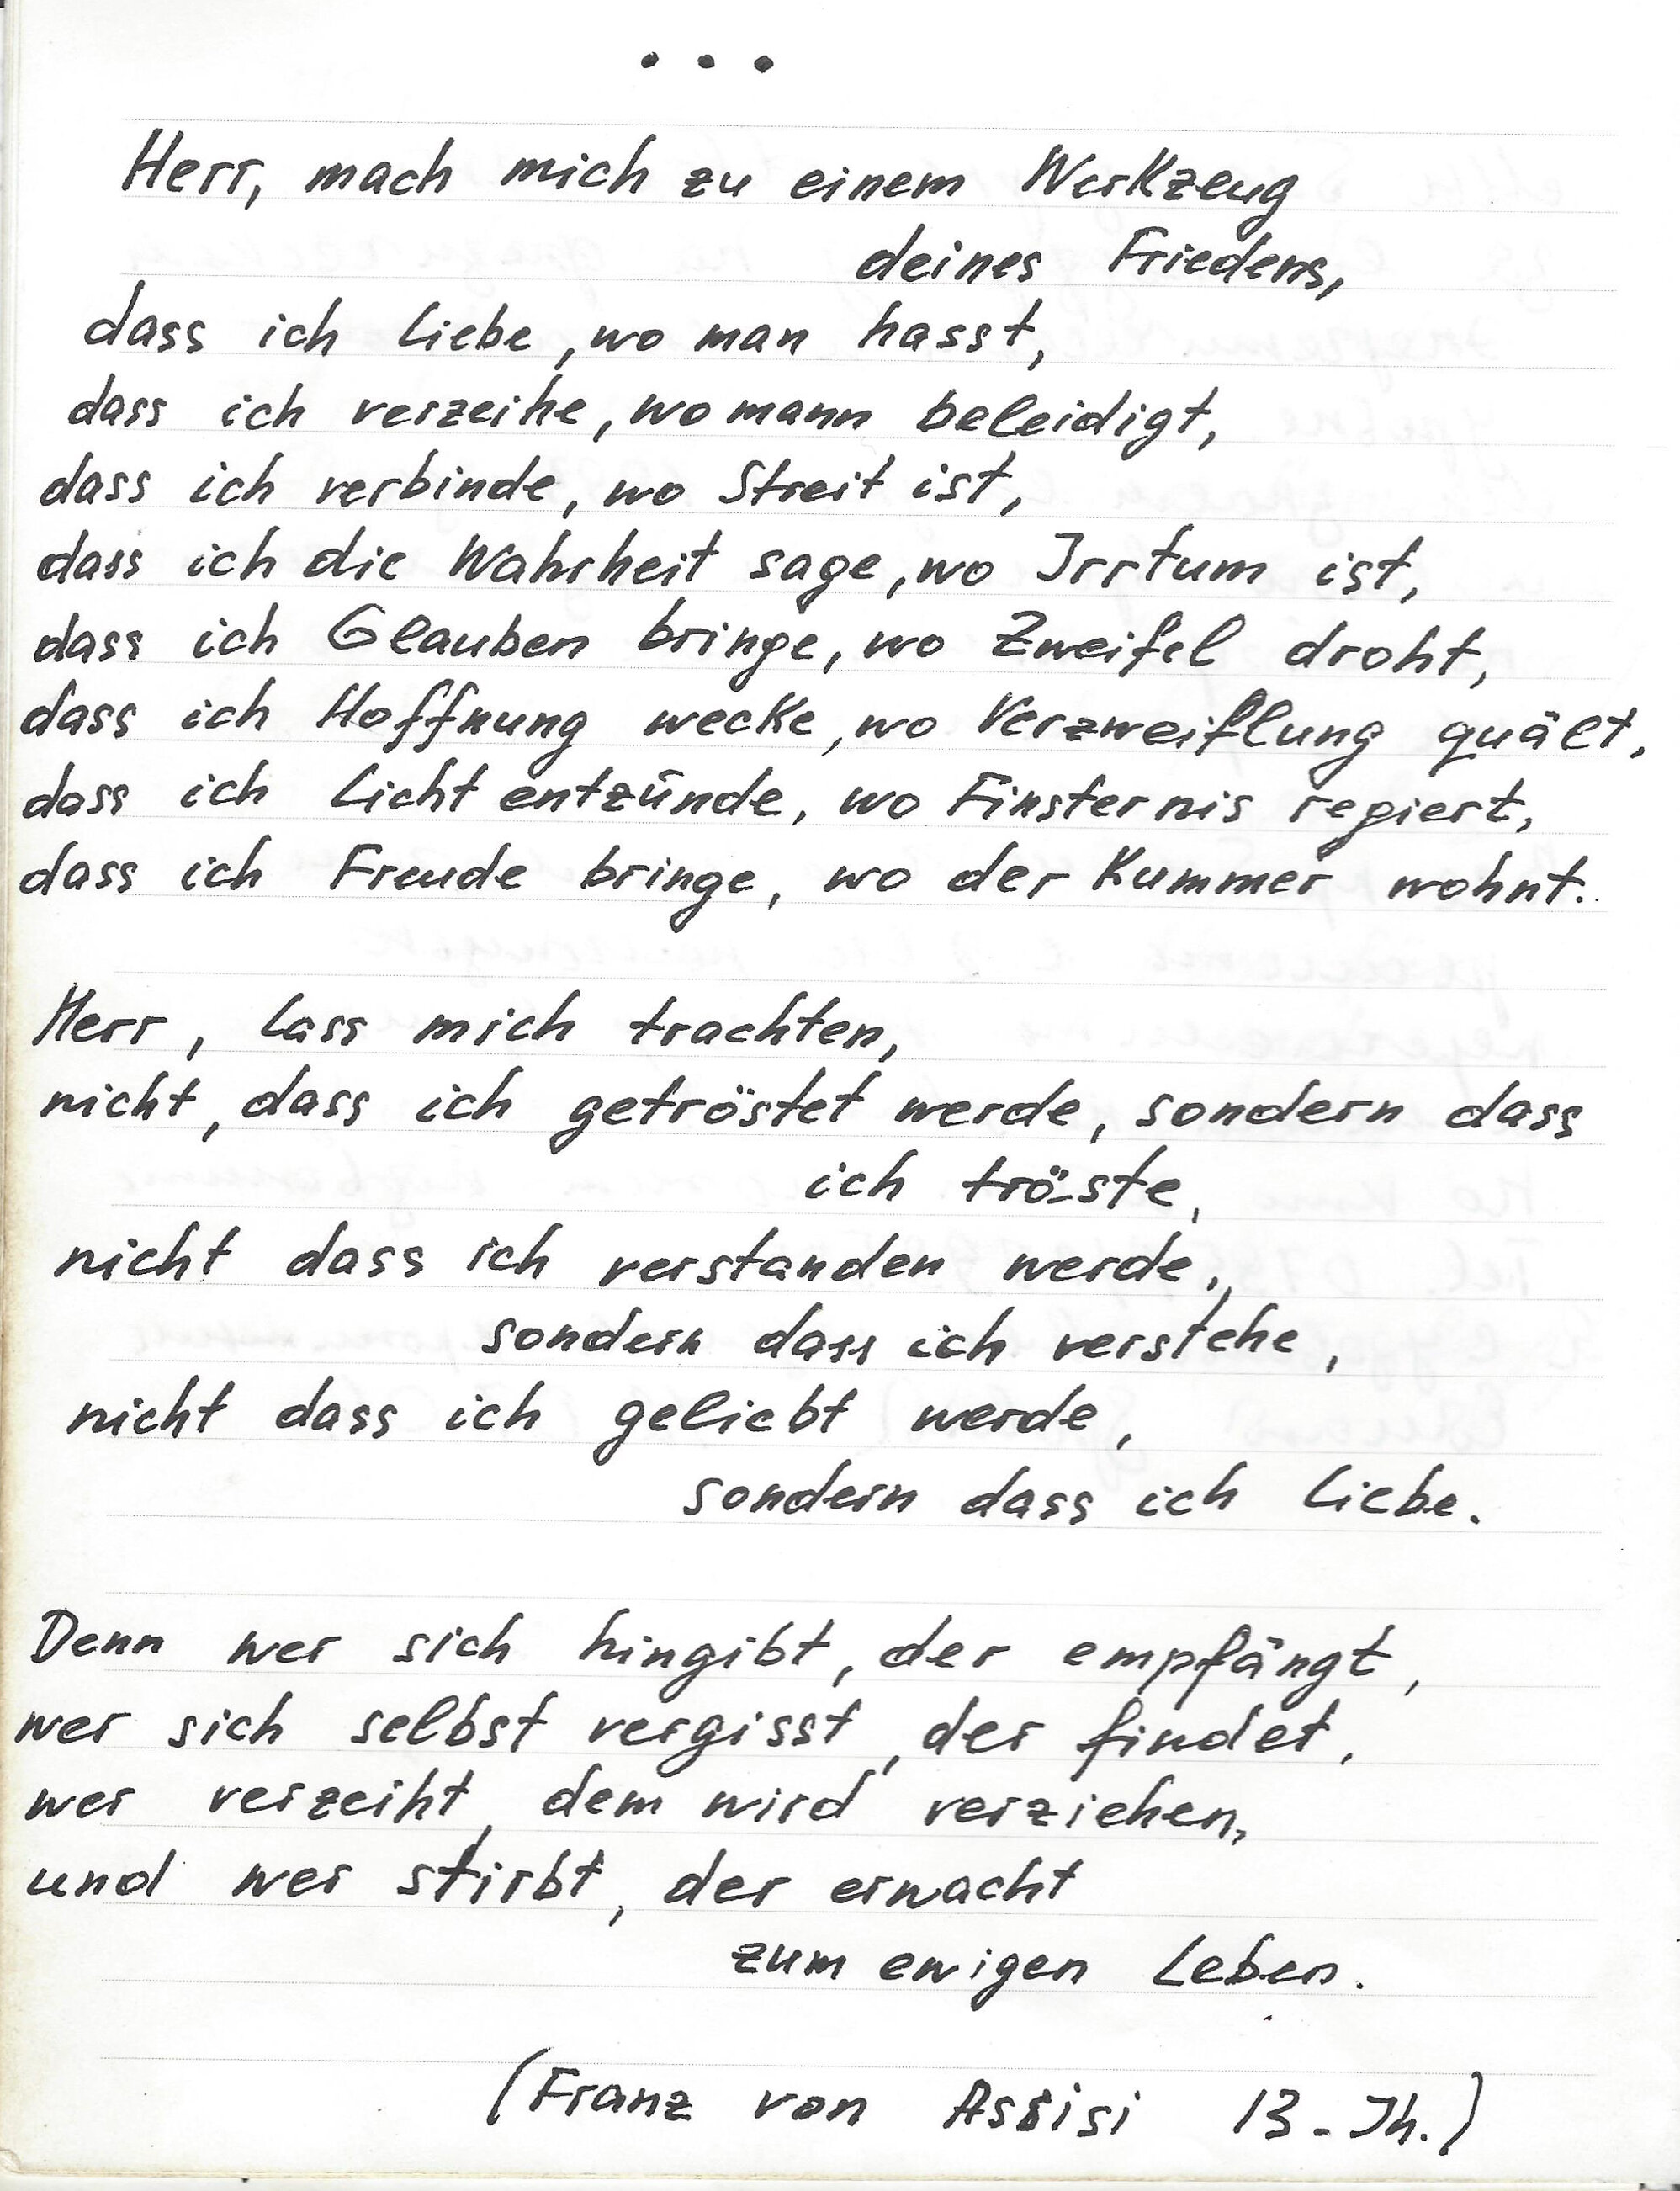 • • •
Herr, mach mich zu einem Werkzeug
deines Friedens,
dass ich liebe, wo man hasst,
dass ich verzeihe, wo mann beleidigt,
dass ich verbinde, wo Streit ist,
dass ich die Wahrheit sage, wo Irrtum ist,
dass ich Glauben bringe, wo Zweifel droht,
dass ich Hoffnung wecke, wo Verzweiflung quält,
dass ich Licht entzünde, wo Finsternis regiert,
dass ich Freude bringe, wo der Kummer wohnt.
Herr, lass mich trachten,
nicht, dass ich getröstet werde, sondern dass
ich tröste,
nicht dass ich verstanden werde,
sondern dass ich verstehe,
nicht dass ich geliebt werde,
sondern dass ich liebe.
Denn wer sich hingibt, der empfängt,
wer sich selbst vergisst, der findet,
wer verzeiht, dem wird verziehen,
und wer stirbt, der erwacht
zum ewigen Leben.
(Franz von Assisi 13. Jh.)